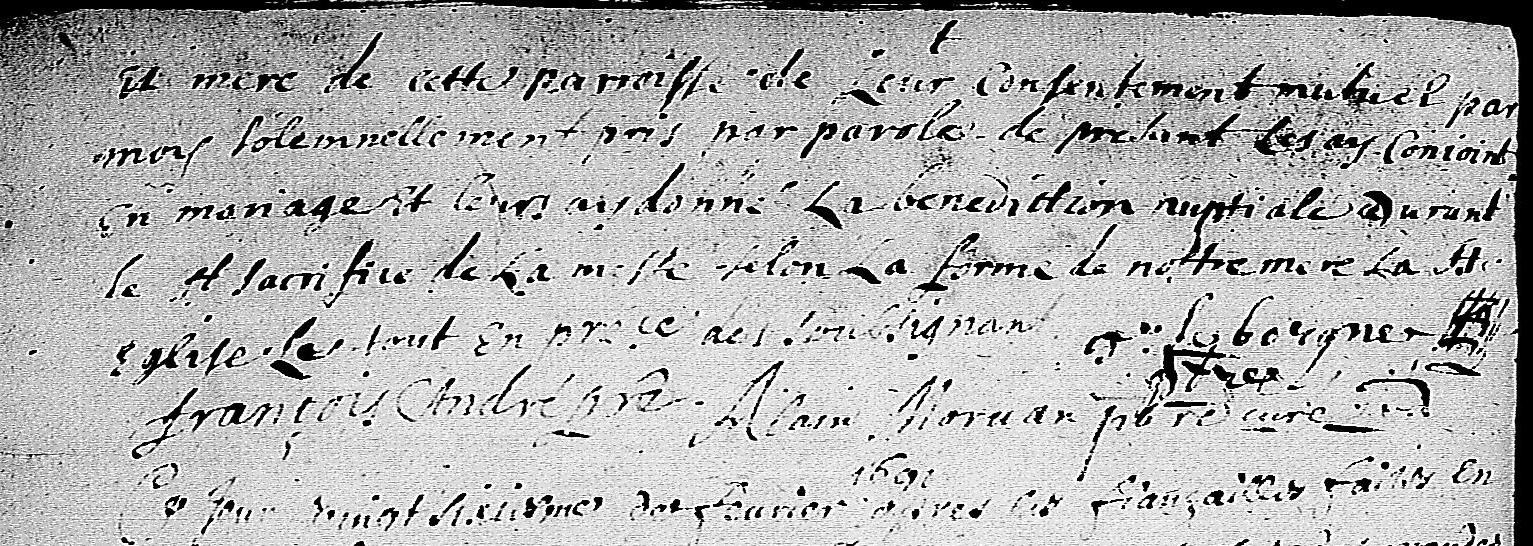 Et mere de cette parroisse de Leur Consentement mutuel par
moy solemnellement pris par paroles de presant Les ay Conioint
En mariage Et leurs ay donné La benediction nuptiale Durant
le St sacrifice de La messe selon La forme de nottre mere La Ste
Eglise Les tout En prece des soubsignant le borgne
françois André pre Alain Morvan pbre curé
1691
Ce Jour vingt sixiesme de feuvrier apres les fiançailles faites En